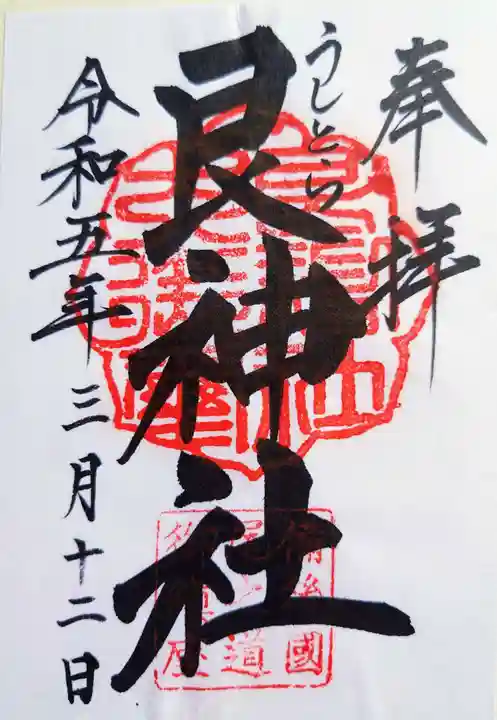 奉拝
うしとら
艮神社
令和五年三月十二日